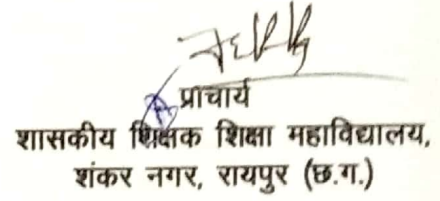 प्राचार्य
शासकीय शिक्षक शिक्षा महाविद्यालय,
शंकर नगर, रायपुर (छ.ग.)